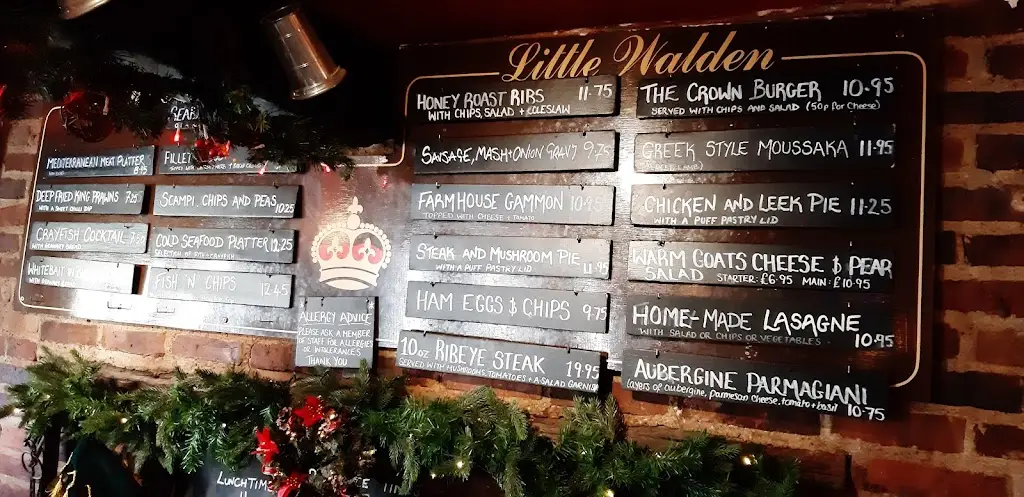 Little Walden
MEDITERRANEAN MEAT PLATTER
8.95
DEEP FRIED KING PRAWNS 7.25
WITH A SWEET CHILLI DIP
CRAYFISH COCKTAIL
WHITEBAIT
FILLET
SCAMPI, CHIPS AND PEAS
10.25
COLD SEAFOOD PLATTER 12.25
SELECTION OF
FISH 'N CHIPS
12.45
ALLERGY ADVICE
PLEASE ASK A MEMBER
OF STAFF FOR ALLERGIES
OR INTOLERANCES
THANK YOU
HONEY ROAST RIBS 11.75
WITH CHIPS, SALAD + COLESLAW
SAUSAGE, MASH + ONION GRAVY 9.75
FARMHOUSE GAMMON 10.95
TOPPED WITH CHEESE + TOMATO
STEAK AND MUSHROOM PIE
WITH A PUFF PASTRY LID 11.95
HAM EGGS & CHIPS 9.75
10oz RIBEYE STEAK 19.95
SERVED WITH MUSHROOMS, TOMATOES + A SALAD GARNISH
THE CROWN BURGER 10.95
SERVED WITH CHIPS AND SALAD (50p For Cheese)
GREEK STYLE MOUSSAKA 11.95
CHICKEN AND LEEK PIE 11.25
WITH A PUFF PASTRY LID
WARM GOATS CHEESE & PEAR
SALAD STARTER: £6.95 MAIN: £10.95
HOME-MADE LASAGNE
WITH SALAD OR CHIPS OR VEGETABLES
10.95
AUBERGINE PARMAGIANI
Layers of aubergine, parmesan cheese, tomato + basil 10.75
LUNCHTIME